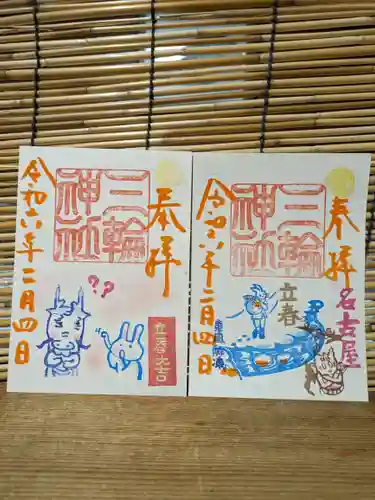 奉拝
三輪神社
??
立春大吉
令和六年二月四日
奉拝
名古屋
三輪神社
立春
令和六年二月四日